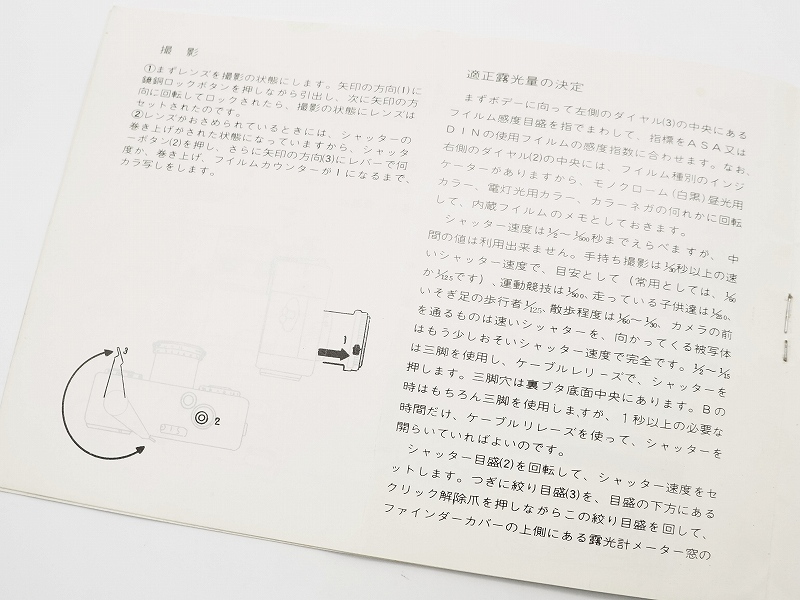 撮影
①まずレンズを撮影の状態にします。矢印の方向(1)に
鏡胴ロックボタンを押しながら引出し、次に矢印の方
向に回転してロックされたら、撮影の状態にレンズは
セットされたのです。
②レンズがおさめられているときには、シャッターの
巻き上げがされた状態になっていますから、シャッタ
ーボタン(2)を押し、さらに矢印の方向(3)にレバーで何
度か、巻き上げ、フイルムカウンターが1になるまで、
カラ写しをします。
1
3
2
適正露光量の決定
まずボデーに向って左側のダイヤル(3)の中央にある
フイルム感度目盛を指でまわして、指標をASA又は
DINの使用フイルムの感度指数に合わせます。なお、
右側のダイヤル(2)の中央には、フイルム種別のインジ
ケーターがありますから、モノクローム(白黒)昼光用
カラー、電灯光用カラー、カラーネガの何れかに回転
して、内蔵フイルムのメモとしておきます。
シャッター速度は½〜1/500秒までえらべますが、中
間の値は利用出来ません。手持ち撮影は1/30秒以上の速
いシャッター速度で、目安として(常用としては、1/60
か1/125です)、運動競技は1/500、走っている子供達は1/250、
いそぎ足の歩行者1/125、散歩程度は1/60〜1/30、カメラの前
を通るものは速いシッャターを、向かってくる被写体
はもう少しおそいシャッター速度で完全です。½〜1/15
は三脚を使用し、ケーブルレリーズで、シャッターを
押します。三脚穴は裏ブタ底面中央にあります。Bの
時はもちろん三脚を使用しますが、1秒以上の必要な
時間だけ、ケーブルリレーズを使って、シャッターを
開らいていればよいのです。
シャッター目盛(2)を回転して、シャッター速度をセ
ットします。つぎに絞り目盛(3)を、目盛の下方にある
クリック解除爪を押しながらこの絞り目盛を回して、
ファインダーカバーの上側にある露光計メーター窓の